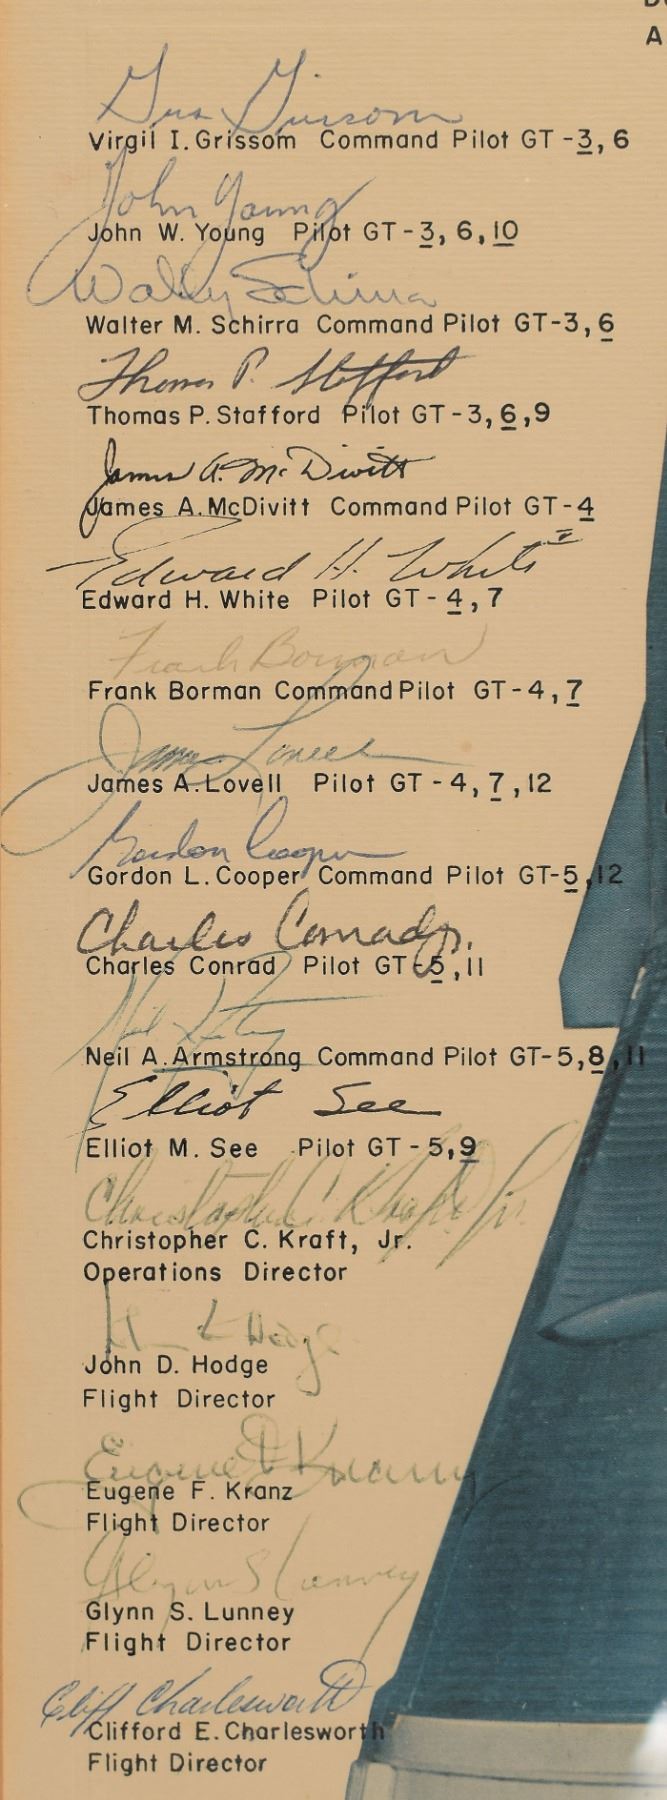 A
Gus Grissom
Virgil I. Grissom Command Pilot GT-3, 6
John Young
John W. Young Pilot GT-3, 6, 10
Wally Schirra
Walter M. Schirra Command Pilot GT-3, 6
Thomas P. Stafford
Thomas P. Stafford Pilot GT-3, 6, 9
James A. McDivitt
James A. McDivitt Command Pilot GT-4
Edward H. White II
Edward H. White Pilot GT-4, 7
Frank Borman
Frank Borman Command Pilot GT-4, 7
James Lovell
James A. Lovell Pilot GT-4, 7, 12
Gordon Cooper
Gordon L. Cooper Command Pilot GT-5, 12
Charles Conrad Jr.
Charles Conrad Pilot GT-5, 11
Neil Armstrong
Neil A. Armstrong Command Pilot GT-5, 8, 11
Elliot See
Elliot M. See Pilot GT-5, 9
Christopher C. Kraft Jr.
Christopher C. Kraft, Jr.
Operations Director
Hodge
John D. Hodge
Flight Director
Eugene F. Kranz
Eugene F. Kranz
Flight Director
Glynn S Lunney
Glynn S. Lunney
Flight Director
Cliff Charlesworth
Clifford E. Charlesworth
Flight Director